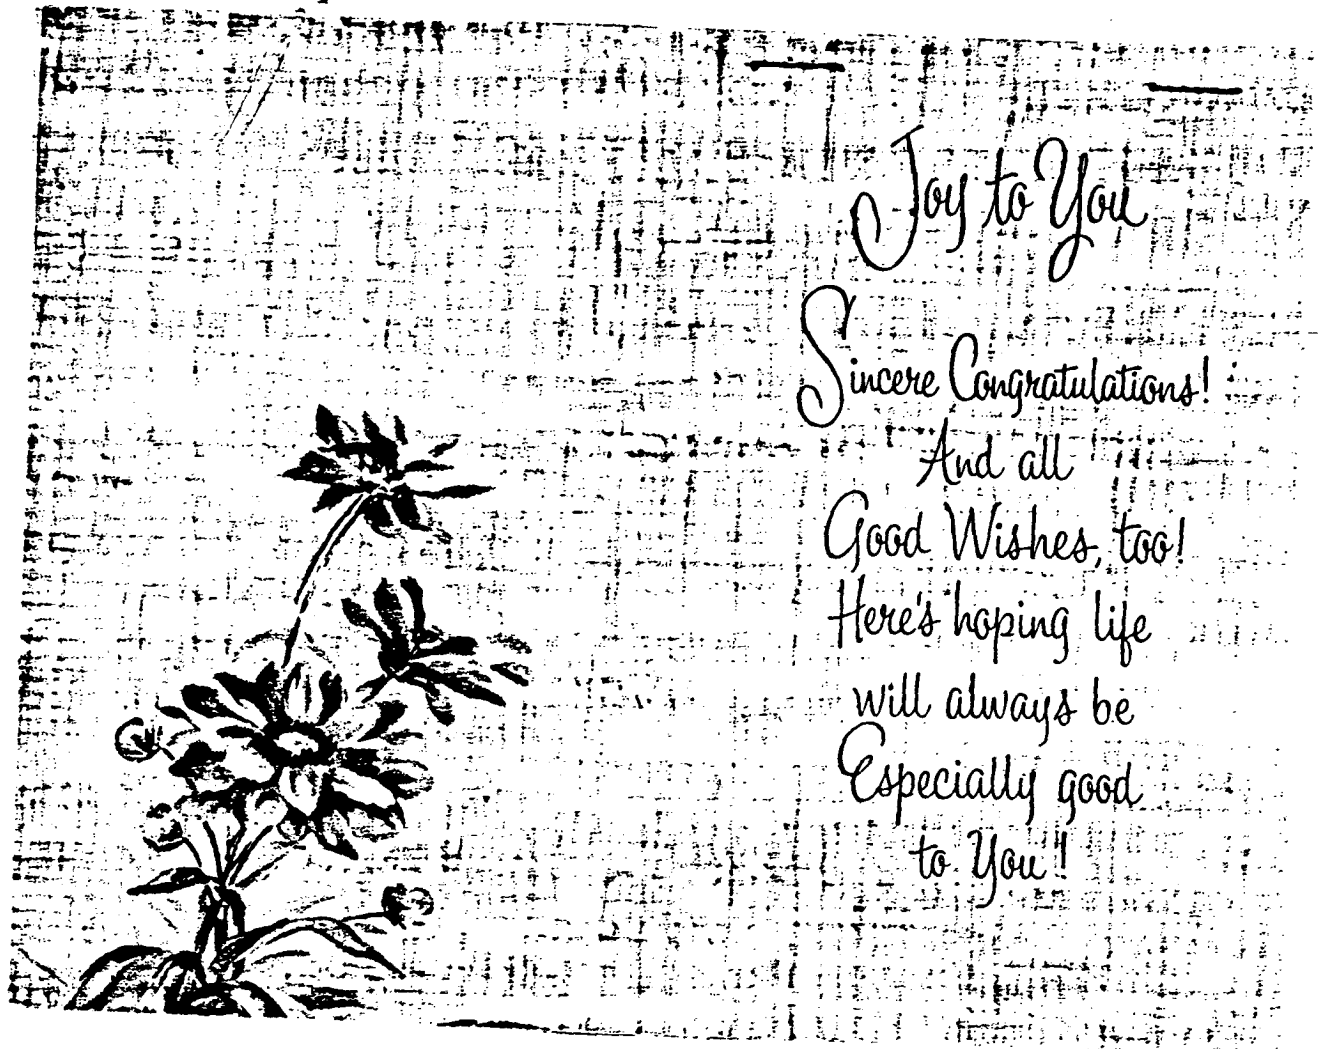 Joy to You
Sincere Congratulations!
And all
Good Wishes, too!
Here's hoping life
will always be
Especially good
to You!